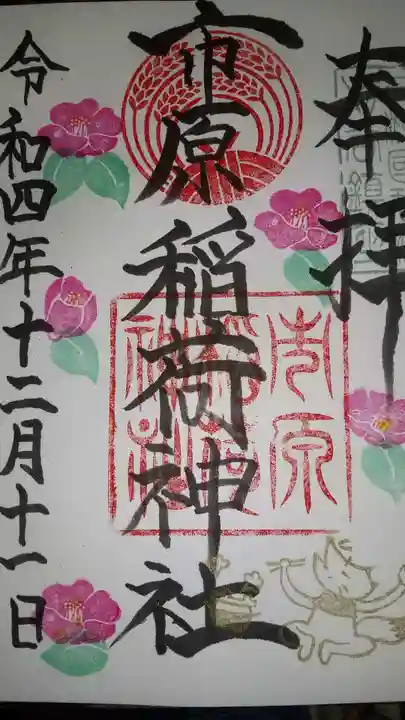 奉拝
市原稲荷神社
令和四年十二月十一日
市原
稲荷
神社